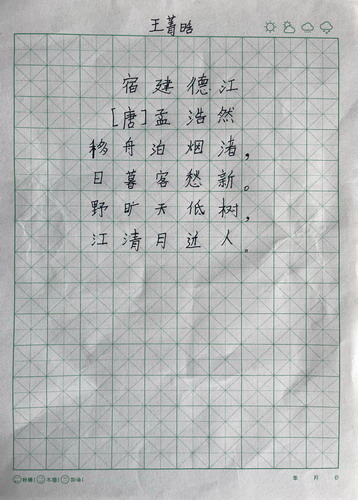 王菁晗
宿建德江
[唐]孟浩然
移舟泊烟渚，
日暮客愁新。
野旷天低树，
江清月近人。
年 月 日